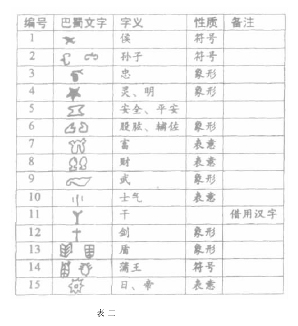 编号 巴蜀文字 字义 性质 备注
1 侯 符号
2 孙子 符号
3 忠 象形
4 灵、明 象形
5 安全、平安
6 股肱、辅佐 象形
7 富 表意
8 财 表意
9 武 象形
10 士气 表意
11 干 借用汉字
12 剑 象形
13 盾 象形
14 蒲王 符号
15 日、帝 表意
表二